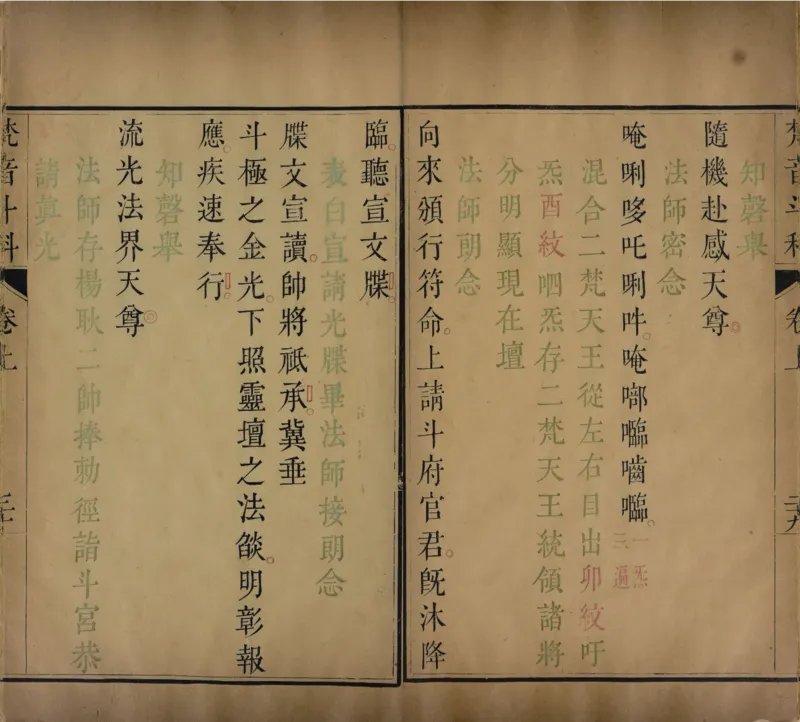 梵音斗科 卷上 二十九
知磬舉
隨機赴感天尊
法師密念
唵唎哆吒唎吽。唵啷𡅏嚙𡅏。一炁三遍
混合二梵天王從左右目出卯紋吁
炁酉紋呬炁存二梵天王統領諸將
分明顯現在壇
法師朗念
向來頒行符命。上請斗府官君。旣沐降
臨。聽宣文牒。
表白宣請光牒畢法師接朗念
牒文宣讀。帥將祇承。冀垂
斗極之金光。下照靈壇之法燄。明彰報
應。疾速奉行。
知磬舉
流光法界天尊
法師存楊耿二帥捧勅徑詣斗宮恭
請真光
梵音斗科 卷上